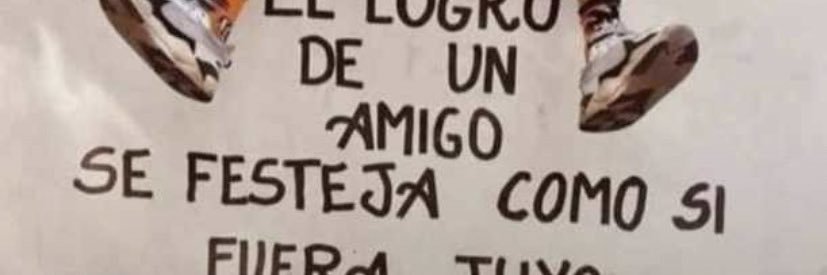 EL LOGRO
DE UN
AMIGO
SE FESTEJA COMO SI
FUERA TUYO